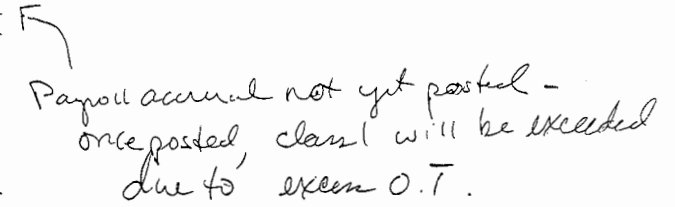 Payroll accrual not yet posted -
once posted, class 1 will be exceeded
due to excess O.T.